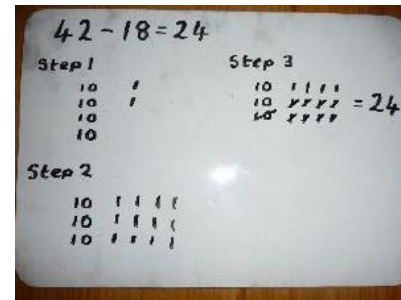 42 - 18 = 24
Step 1
10 ı
10 ı
10
10
Step 2
10 ı ı ı ı
10 ı ı ı ı
10 ı ı ı ı
Step 3
10 ı ı ı ı
10 ı ı ı ı = 24
10 ı ı ı ı